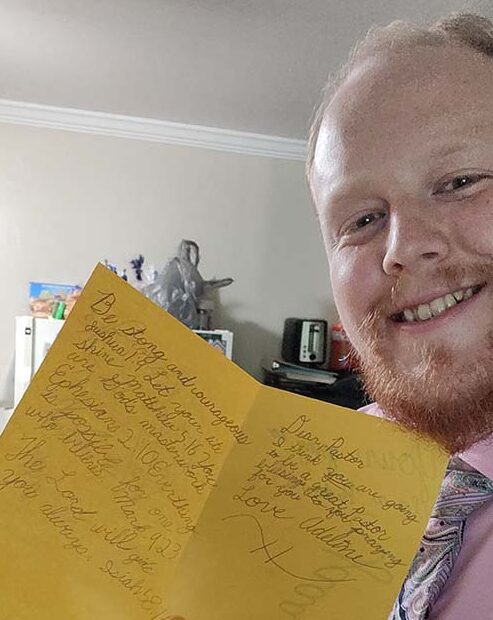 Be stong and courageous
Joshua 1:9 Let your us
shine Matthew 5:16 You
are Gods masterwork
Ephesians 2:10 Everything
is possible for one
who believe Mark 9:23
The Lord will give
you always. Isiah 58
Diary Pastor
I think you are going
to be a great Pastor
for you praying
Love Adeline